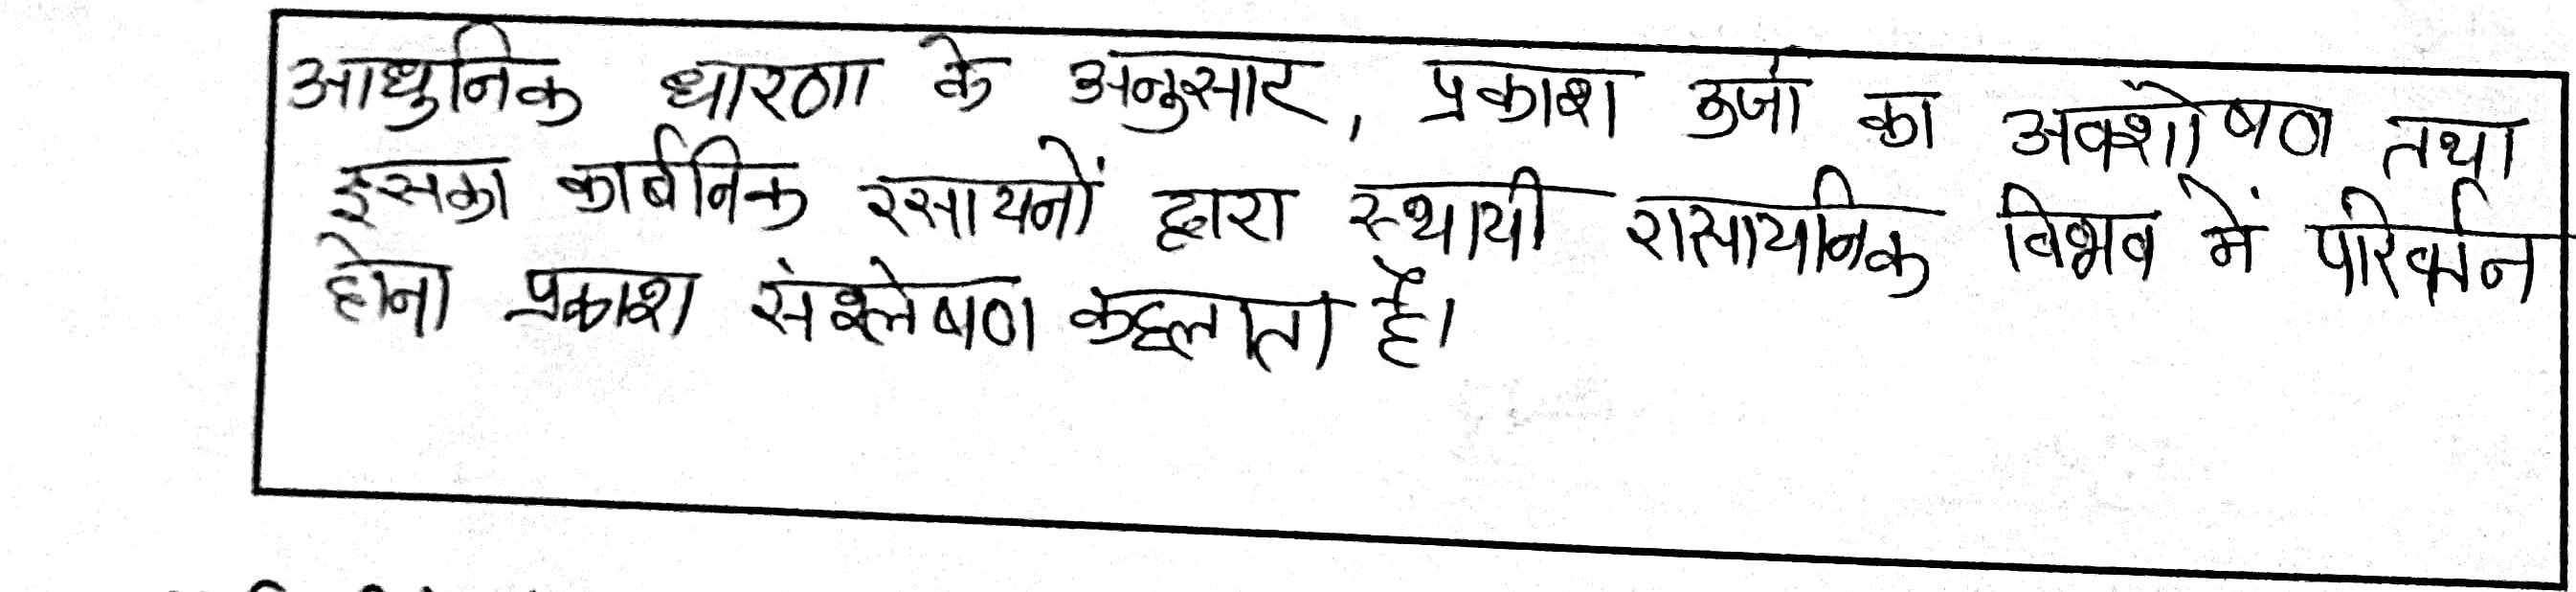 आधुनिक धारणा के अनुसार, प्रकाश उर्जा का अवशोषण तथा
इसका कार्बनिक रसायनों द्वारा स्थायी रासायनिक विभव में परिवर्तन
होना प्रकाश संश्लेषण कहलाता है।